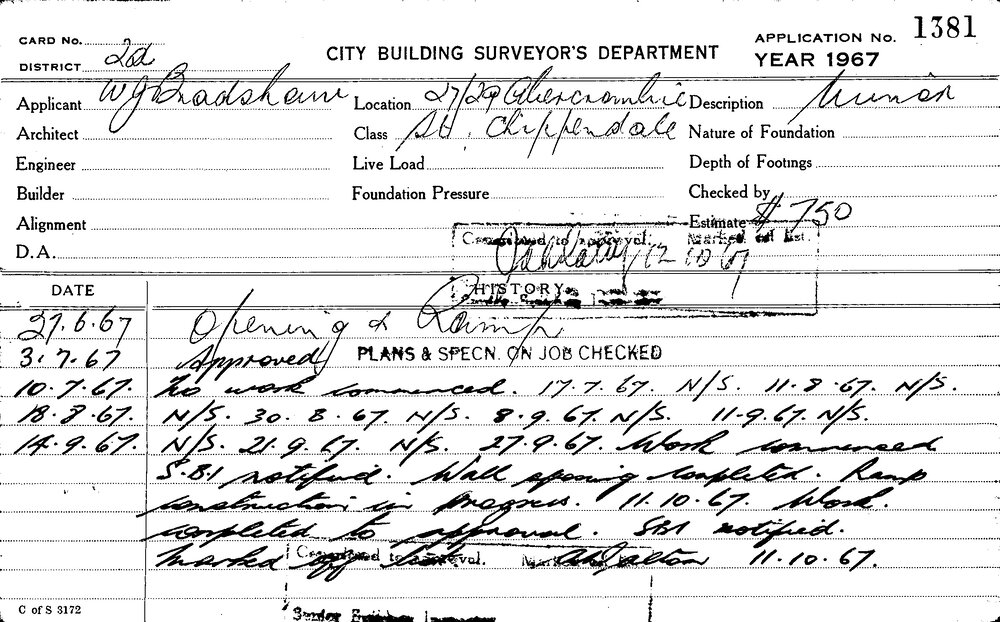 CARD No.
APPLICATION No. 1381
DISTRICT 2d
CITY BUILDING SURVEYOR'S DEPARTMENT
YEAR 1967
Applicant W J Bradshaw Location 27/29 Abercrombie Description Minor
Architect Class St. Chippendale Nature of Foundation
Engineer Live Load Depth of Footings
Builder Foundation Pressure Checked by
Alignment Estimate $750
Completed to approval. Marked off list.
D.A. 12 10 67
DATE HISTORY
27.6.67 Opening & Ramp
3.7.67 Approved PLANS & SPECN. ON JOB CHECKED
10.7.67. No work commenced. 17.7.67. N/S. 11.8.67. N/S.
18.8.67. N/S. 30.8.67. N/S. 8.9.67. N/S. 11.9.67. N/S.
14.9.67. N/S. 21.9.67. N/S. 27.9.67. Work commenced
S.B.I notified. Wall opening completed. Ramp
construction in progress. 11.10.67. Work
completed to approval. SBI notified.
Marked off list. 11.10.67.
Completed to approval.
C of S 3172
Senior Building Inspector